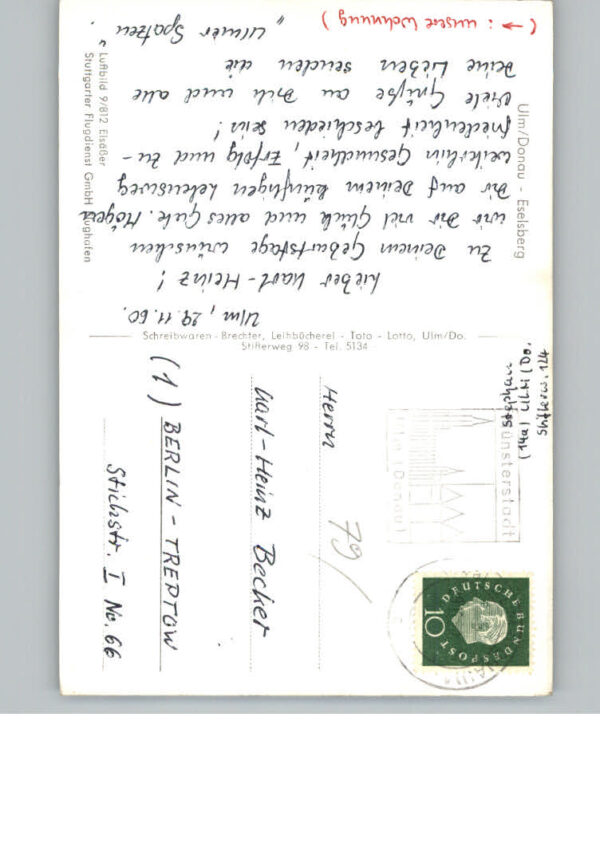 Ulm/Donau - Eselsberg
Ulm, 29.11.60.
Lieber Karl-Heinz!
Zu Deinem Geburtstage wünschen
wir Dir viel Glück und alles Gute. Mögen
Dir auf Deinem künftigen Lebensweg
weiterhin Gesundheit, Erfolg und Zu-
friedenheit beschieden sein!
Viele Grüße an Dich und alle
Deine Lieben senden die
"Ulmer Spatzen"
(→ : unsere Wohnung)
Luftbild 9/812 Elsäßer
Stuttgarter Flugdienst GmbH Flughafen
Schreibwaren-Brechter, Leihbücherei - Toto - Lotto, Ulm/Do.
Stifterweg 98 - Tel. 5134
Stephan
(14a) ULM/Do.
Stifterw. 124
Münsterstadt
Ulm (Donau)
DEUTSCHE BUNDESPOST
10
79/
Herrn
Karl-Heinz Becker
(1) BERLIN-TREPTOW
Stichstr. I No. 66